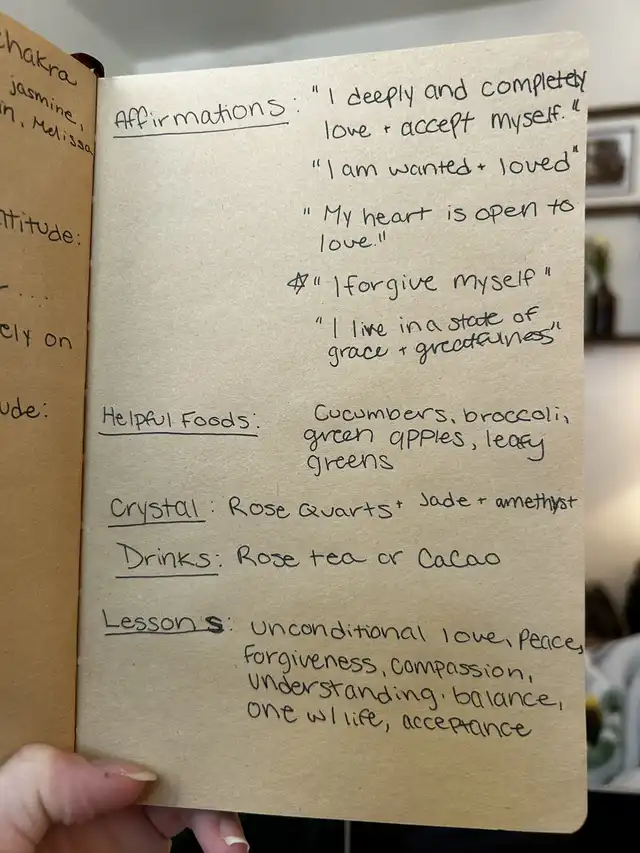 chakra
jasmine,
n, Melissa
titude:
ely on
ude:
Affirmations: "I deeply and completely
love + accept myself."
"I am wanted + loved"
"My heart is open to
love."
☆ "I forgive myself"
"I live in a state of
grace + greatfulness"
Helpful Foods: Cucumbers, broccoli,
green apples, leafy
greens
Crystal: Rose Quarts + Jade + amethyst
Drinks: Rose tea or Cacao
Lessons: unconditional love, Peace,
forgiveness, compassion,
understanding, balance,
one w/ life, acceptance